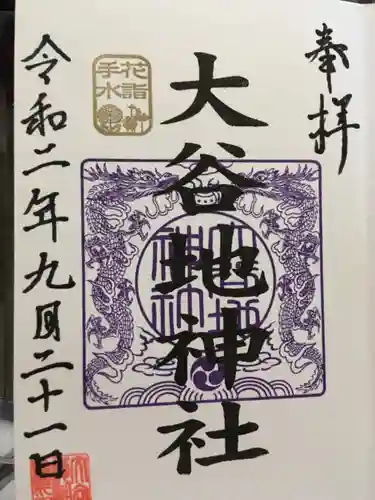 奉拝
大谷地神社
花詣
手水
令和二年九月二十一日